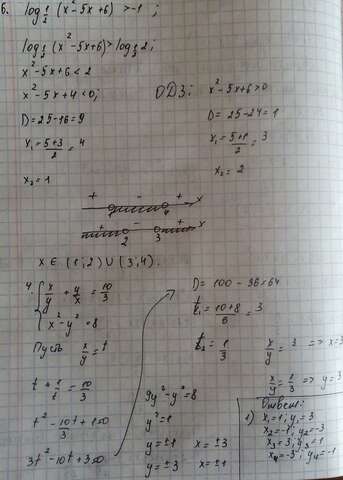 6. log 1/2 (x² - 5x + 6) > -1 ;
log 1/2 (x² - 5x + 6) > log 1/2 2;
x² - 5x + 6 < 2
x² - 5x + 4 < 0;
D = 25 - 16 = 9
x₁ = (5+3)/2 = 4
x₂ = 1
ОДЗ: x² - 5x + 6 > 0
D = 25 - 24 = 1
x₁ = (5+1)/2 = 3
x₂ = 2
+ - + x
1 4
+ - + x
2 3
x ∈ (1; 2) ∪ (3; 4).
4. { x/y + y/x = 10/3
x² - y² = 8
Пусть x/y = t
t + 1/t = 10/3
t² - 10t/3 + 1 = 0
3t² - 10t + 3 = 0
D = 100 - 36 = 64
t₁ = (10+8)/6 = 3
t₂ = 1/3
x/y = 3 => x=3
x/y = 1/3 => y=3
9y² - y² = 8
y² = 1
y = ±1 x = ±3
y = ±3 x = ±1
Ответ:
1) x₁ = 1; y₁ = 3
x₂ = -1; y₂ = -3
x₃ = 3; y₃ = 1
x₄ = -3; y₄ = -1